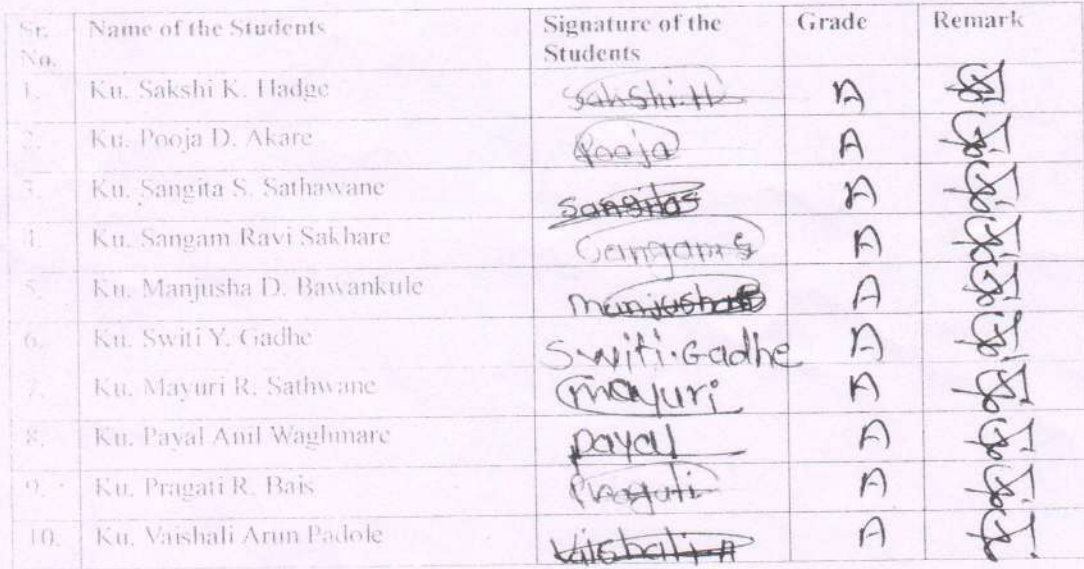 Sr. No. Name of the Students Signature of the Students Grade Remark
1. Ku. Sakshi K. Hadge Sakshi.H A
2. Ku. Pooja D. Akare Pooja A
3. Ku. Sangita S. Sathawane Sangitas A
4. Ku. Sangam Ravi Sakhare Sangam S A
5. Ku. Manjusha D. Bawankule Manjusha A
6. Ku. Switi Y. Gadhe Switi.Gadhe A
7. Ku. Mayuri R. Sathwane mayuri A
8. Ku. Payal Anil Waghmare payal A
9. Ku. Pragati R. Bais Pragati A
10. Ku. Vaishali Arun Padole A